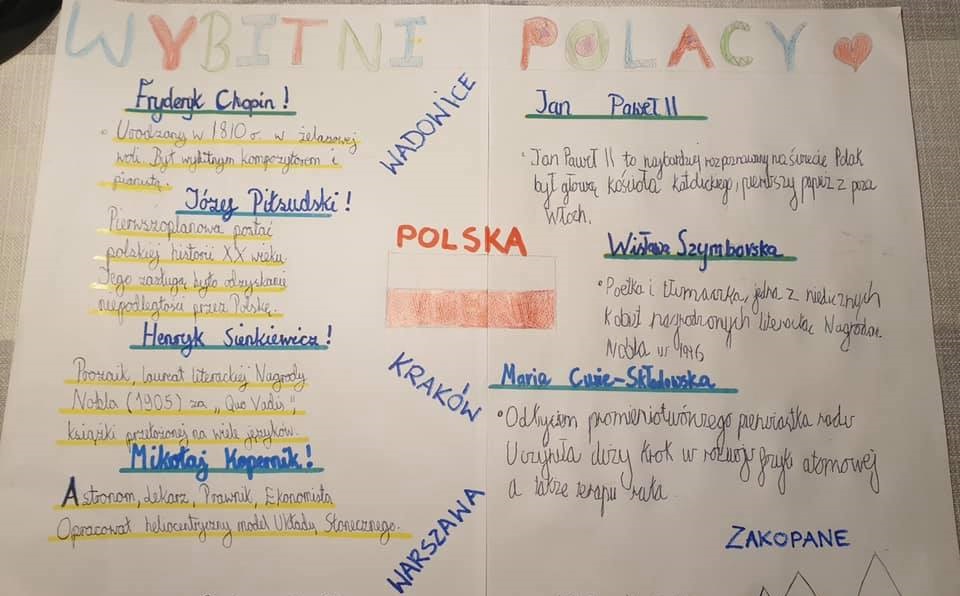 WYBITNI POLACY
Fryderyk Chopin!
Urodzany w 1810 r. w żelazowej
woli. Był wybitnym kompozytorem i
pianistą.
Józef Piłsudski!
Pierwszoplanowa postać
polskiej historii XX wieku.
Jego zasługą było odzyskanie
niepodległości przez Polskę.
Henryk Sienkiewicz!
Prozaik, laureat literackiej Nagrody
Nobla (1905) za "Quo Vadis",
książki przełożonej na wiele języków.
Mikołaj Kopernik!
Astronom, Lekarz, Prawnik, Ekonomista
Opracował heliocentryczny model Układu Słonecznego.
WADOWICE
POLSKA
KRAKÓW
WARSZAWA
Jan Paweł II
Jan Paweł II to najbardziej rozpoznawany na świecie Polak
był głową kościoła katolickiego, pierwszy papież z poza
Włoch.
Wisława Szymborska
Poetka i tłumaczka, jedna z nielicznych
kobiet nagrodzonych literacką Nagrodą
Nobla w 1996
Maria Curie-Skłodowska
promieniotwórczego pierwiastka radu
Uczyniła duży krok w rozwoju fizyki atomowej
a także terapii raka
ZAKOPANE